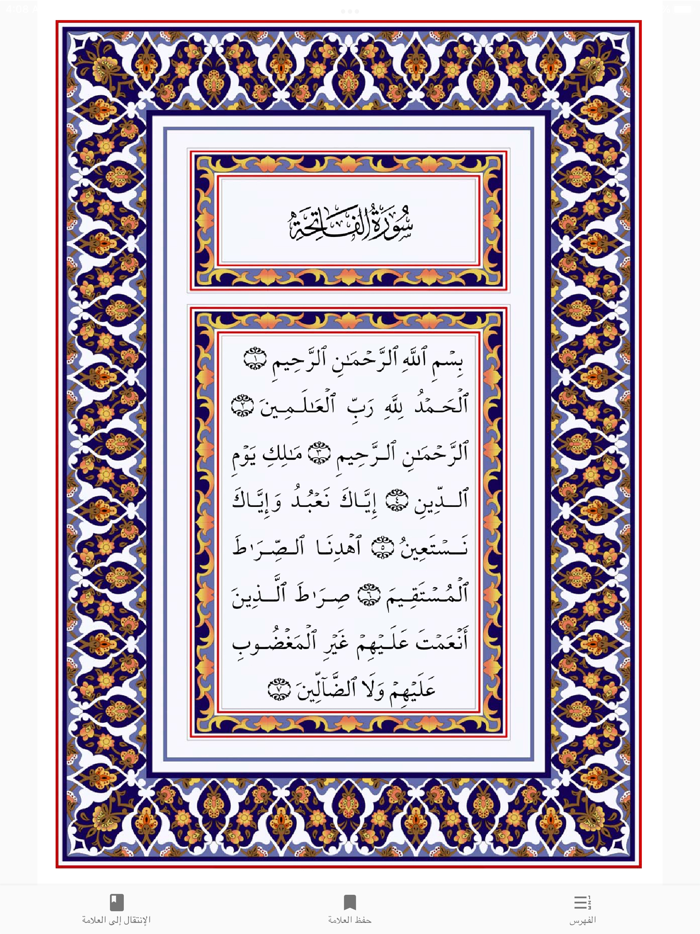 سُورَةُ الْفَاتِحَةِ
بِسْمِ ٱللَّهِ ٱلرَّحْمَٰنِ ٱلرَّحِيمِ ١
ٱلْحَمْدُ لِلَّهِ رَبِّ ٱلْعَٰلَمِينَ ٢
ٱلرَّحْمَٰنِ ٱلرَّحِيمِ ٣ مَٰلِكِ يَوْمِ
ٱلدِّينِ ٤ إِيَّاكَ نَعْبُدُ وَإِيَّاكَ
نَسْتَعِينُ ٥ ٱهْدِنَا ٱلصِّرَٰطَ
ٱلْمُسْتَقِيمَ ٦ صِرَٰطَ ٱلَّذِينَ
أَنْعَمْتَ عَلَيْهِمْ غَيْرِ ٱلْمَغْضُوبِ
عَلَيْهِمْ وَلَا ٱلضَّآلِّينَ ٧
الفهرس
حفظ العلامة
الإنتقال إلى العلامة